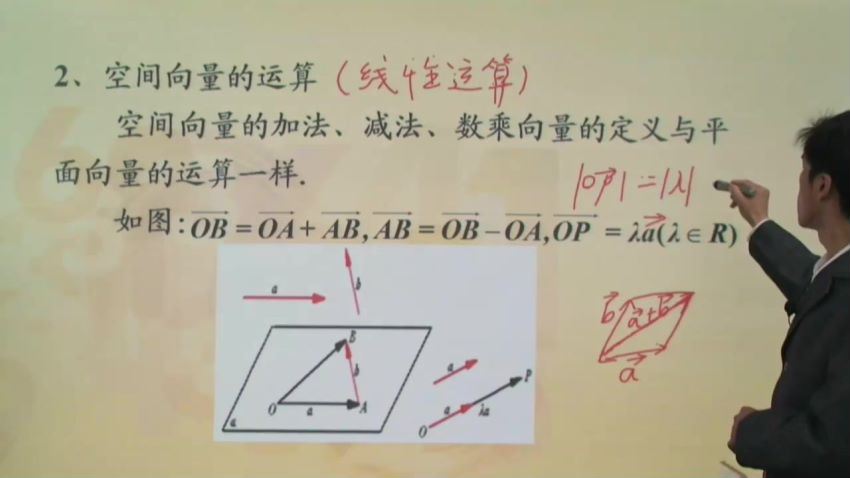 2、空间向量的运算（线性运算）
空间向量的加法、减法、数乘向量的定义与平
面向量的运算一样.
|OP| = |λ|
如图:OB = OA + AB, AB = OB − OA, OP = λa(λ ∈ R)
a
b
b
a+b
a
B
b
O
a
A
a
a
P
a
λa
O